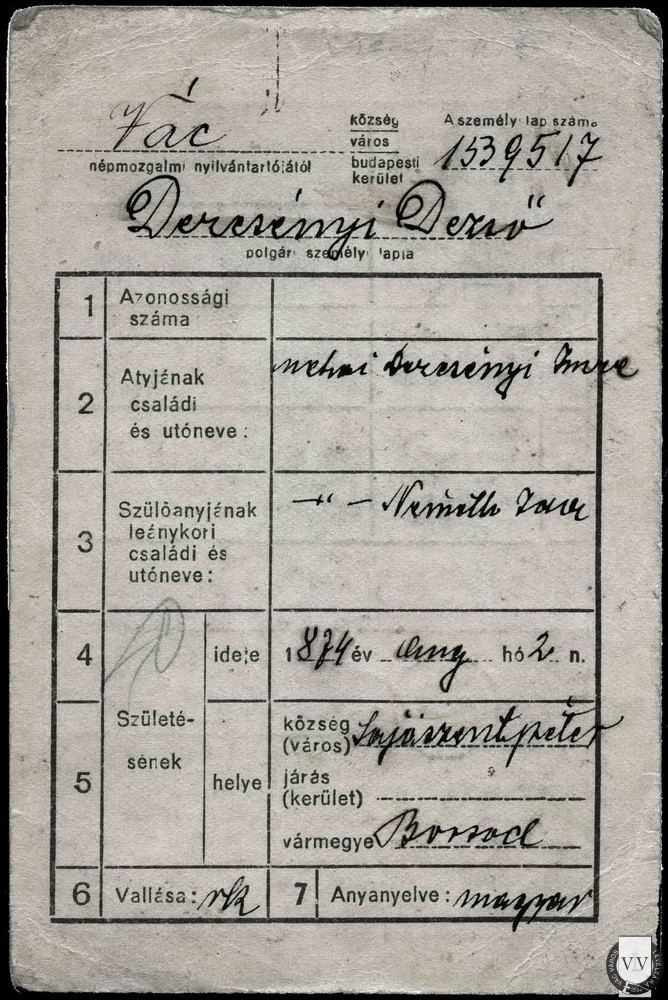 Vác
község
város
budapesti
kerület
A személyi lap száma
1539517
népmozgalmi nyilvántartójától
Dercsényi Dezső
polgári személyi lapja
1 Azonossági
száma
2 Atyjának
családi
és utóneve:
Dercsényi Imre
3 Szülőanyjának
leánykori
családi és
utóneve:
— " — Németh
4 ideje 1874 év Aug hó 2 n.
Születé-
sének
5 helye
község
(város) Sajószentpéter
járás
(kerület)
vármegye Borsod
6 Vallása: rk 7 Anyanyelve: magyar
VV